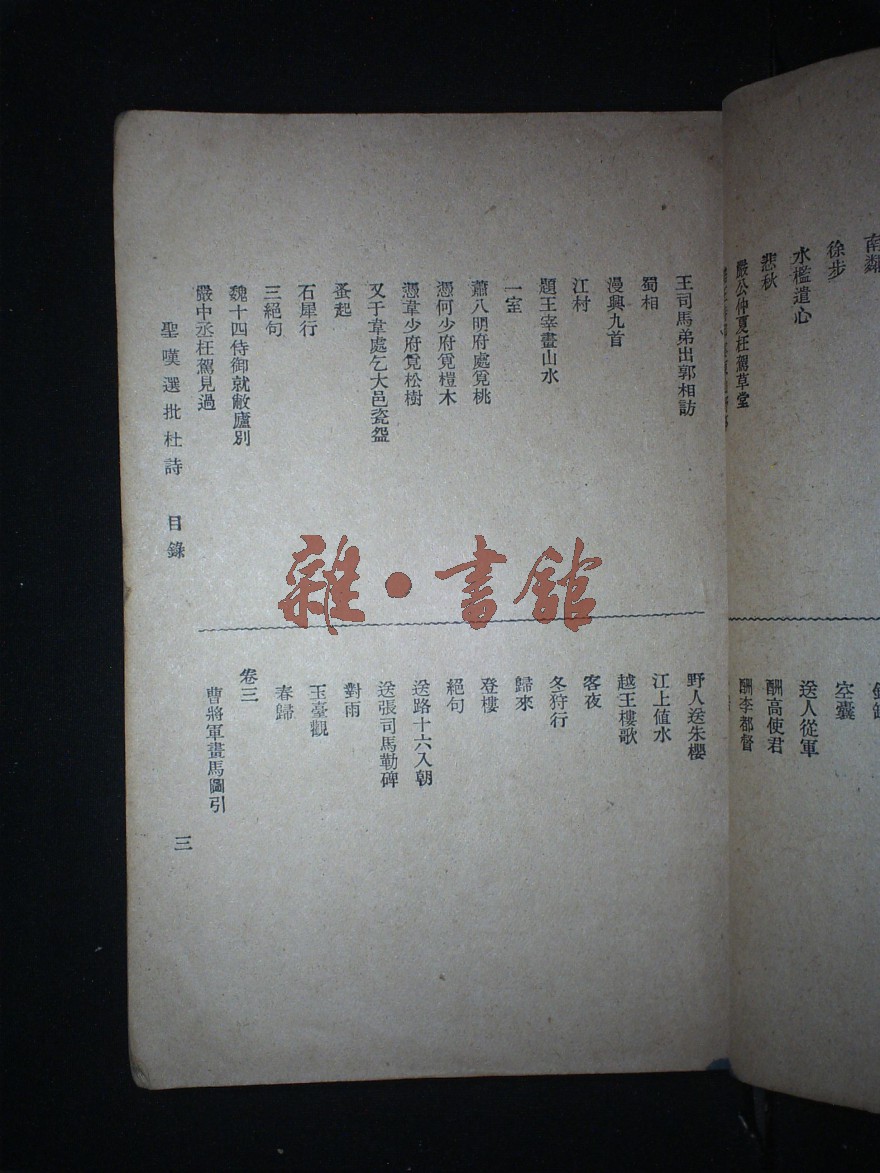 南鄰
徐步
水檻遣心
悲秋
嚴公仲夏枉駕草堂
空囊
送人從軍
酬高使君
酬李都督
王司馬弟出郭相訪
蜀相
漫興九首
江村
題王宰畫山水
一室
蕭八明府處覓桃
憑何少府覓榿木
憑韋少府覓松樹
又于韋處乞大邑瓷盌
蚤起
石犀行
三絕句
魏十四侍御就敝廬別
嚴中丞枉駕見過
野人送朱櫻
江上值水
越王樓歌
客夜
冬狩行
歸來
登樓
絕句
送路十六入朝
送張司馬勒碑
對雨
玉臺觀
春歸
卷三
曹將軍畫馬圖引
聖嘆選批杜詩 目錄
三
雜·書館